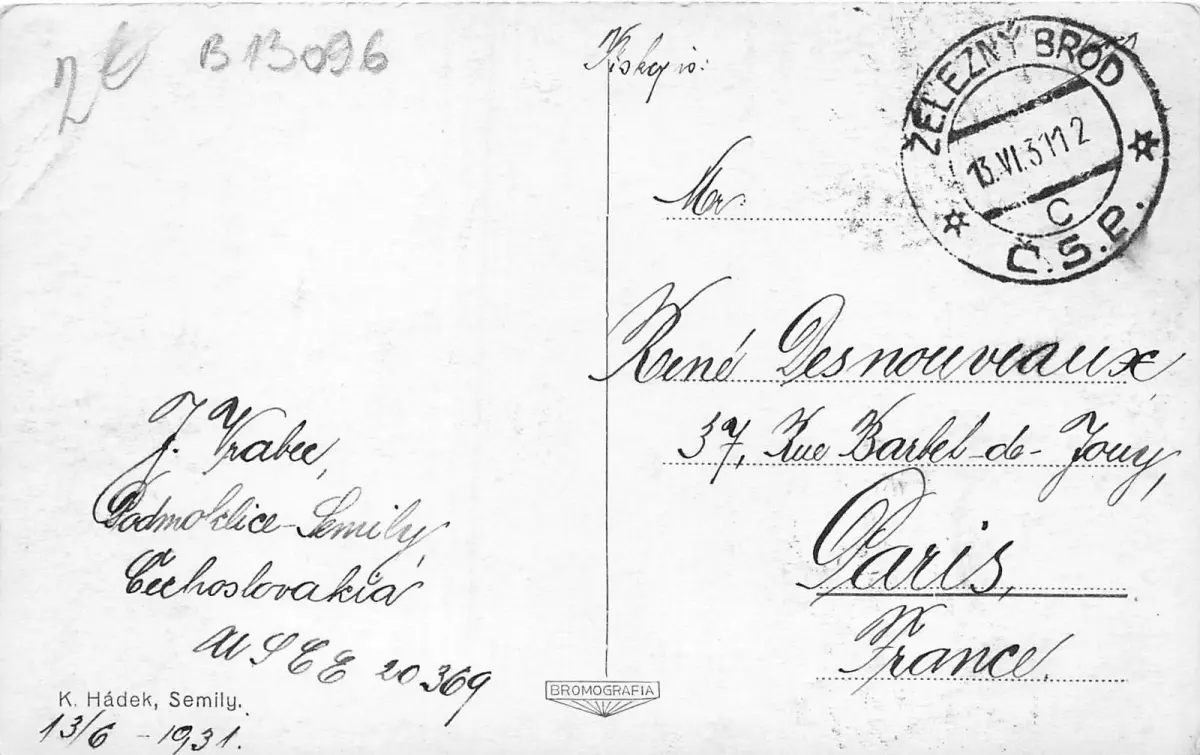 2€ B 13096
ŽELEZNÝ BROD
13.VI.31 12
C
Č.S.P.
Mr.
René Desnouveaux
37, Rue Barbet-de-Jouy,
Paris,
France.
J. Vrabec,
Podmoklice-Semily,
Čechoslovakiá
USEE 20369
K. Hádek, Semily.
13/6 - 1931.
BROMOGRAFIA